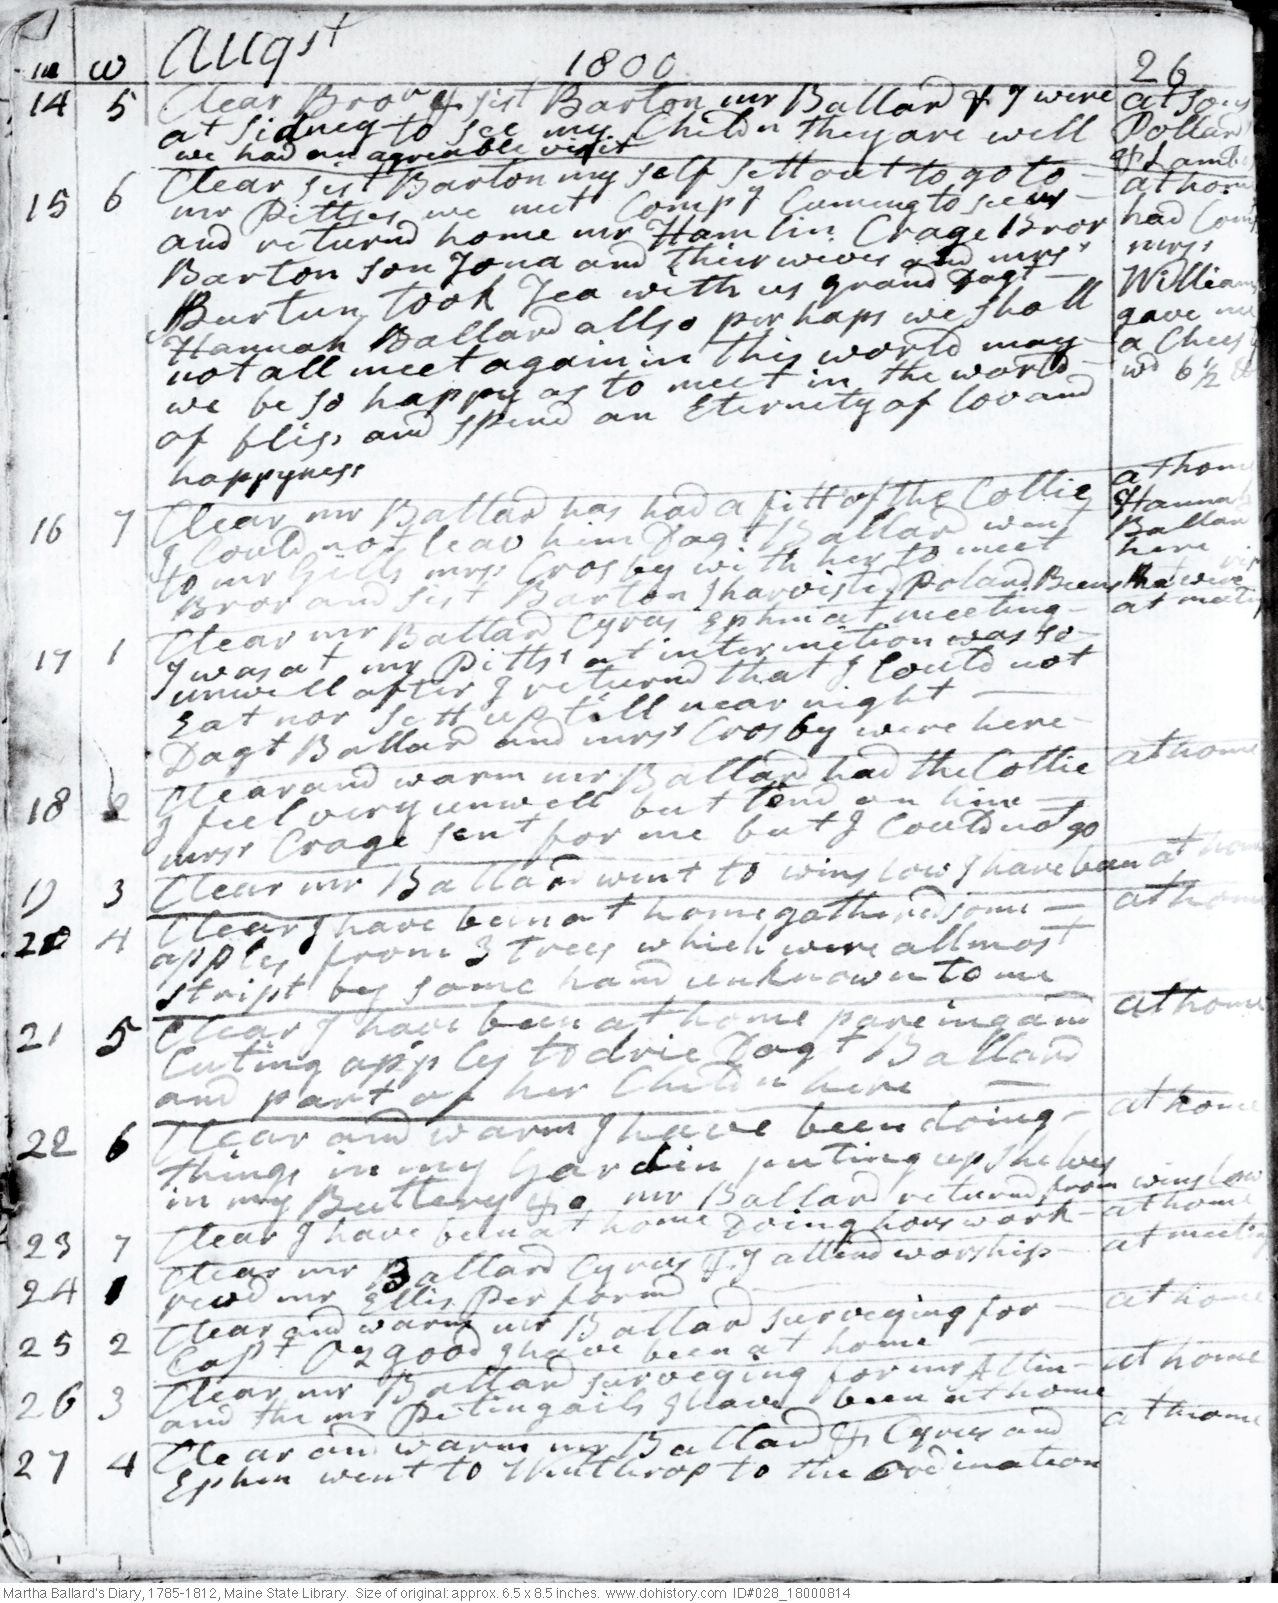 m w Augst 1800 26
14 5 Clear Bror & sist Barton mr Ballard & I were at Sons
at Sidney to see my Childn they are well Pollard
we had an agreable visit & Lambd
15 6 Clear sist Barton my self sett out to go to at home
mr Pittses we met Compy Cuming to see us had Comp
and returnd home mr Hamlin Crage Bror mrss
Barton Son Jona and their wives and mrss Williams
Burtun took Tea with us grand Dagt gave me
Hannah Ballard allso perhaps we shall a Chees
not all meet again in this world may wd 6 1/2 lb
we be so happy as to meet in the world
of bliss and spend an Eternity of lov and
happyness
16 7 Clear mr Ballard has had a fitt of the Collic at home
I Could not leav him Dagt Ballard went Hannah
to mr Gills mrss Crosby with her to meet Ballard
Bror and sist Barton I harvisted Poland Beens here
17 1 Clear mr Ballard Cyrus Ephm at meeting at meeting
I was at mr Pitts's at intermition was so
unwell after I returnd that I Could not
Eat nor sett up till near night
Dagt Ballard and mrss Crosby were here
18 2 Clear and warm mr Ballard had the Collic at home
I feel very unwell but tend on him
mrss Crage sent for me but I Could not go
19 3 Clear mr Ballard went to winslow I have been at home
20 4 Clear I have been at home gatherd some at home
apples from 3 trees which were allmost
stript by some hand unknown to me
21 5 Clear I have been at home pareing and at home
Cuting apples to drie Dagt Ballard
and part of her Childn here
22 6 Clear and warm I have been doing at home
things in my Gardin puting up shelves
in my Buttery &c mr Ballard returnd from winslow
23 7 Clear I have been at home Doing hous work at home
24 1 Clear mr Ballard Cyrus & I attend worship at meeting
revd mr Ellis Performd
25 2 Clear and warm mr Ballard surveying for at home
Capt Ozgood I have been at home
26 3 Clear mr Ballard surveying for mr Allin at home
and the mr Petingails I have been at home
27 4 Clear and warm mr Ballard & Cyrus and at home
Ephm went to Winthrop to the ordination
Martha Ballard's Diary, 1785-1812, Maine State Library. Size of original: approx. 6.5 x 8.5 inches. www.dohistory.com ID#028_18000814